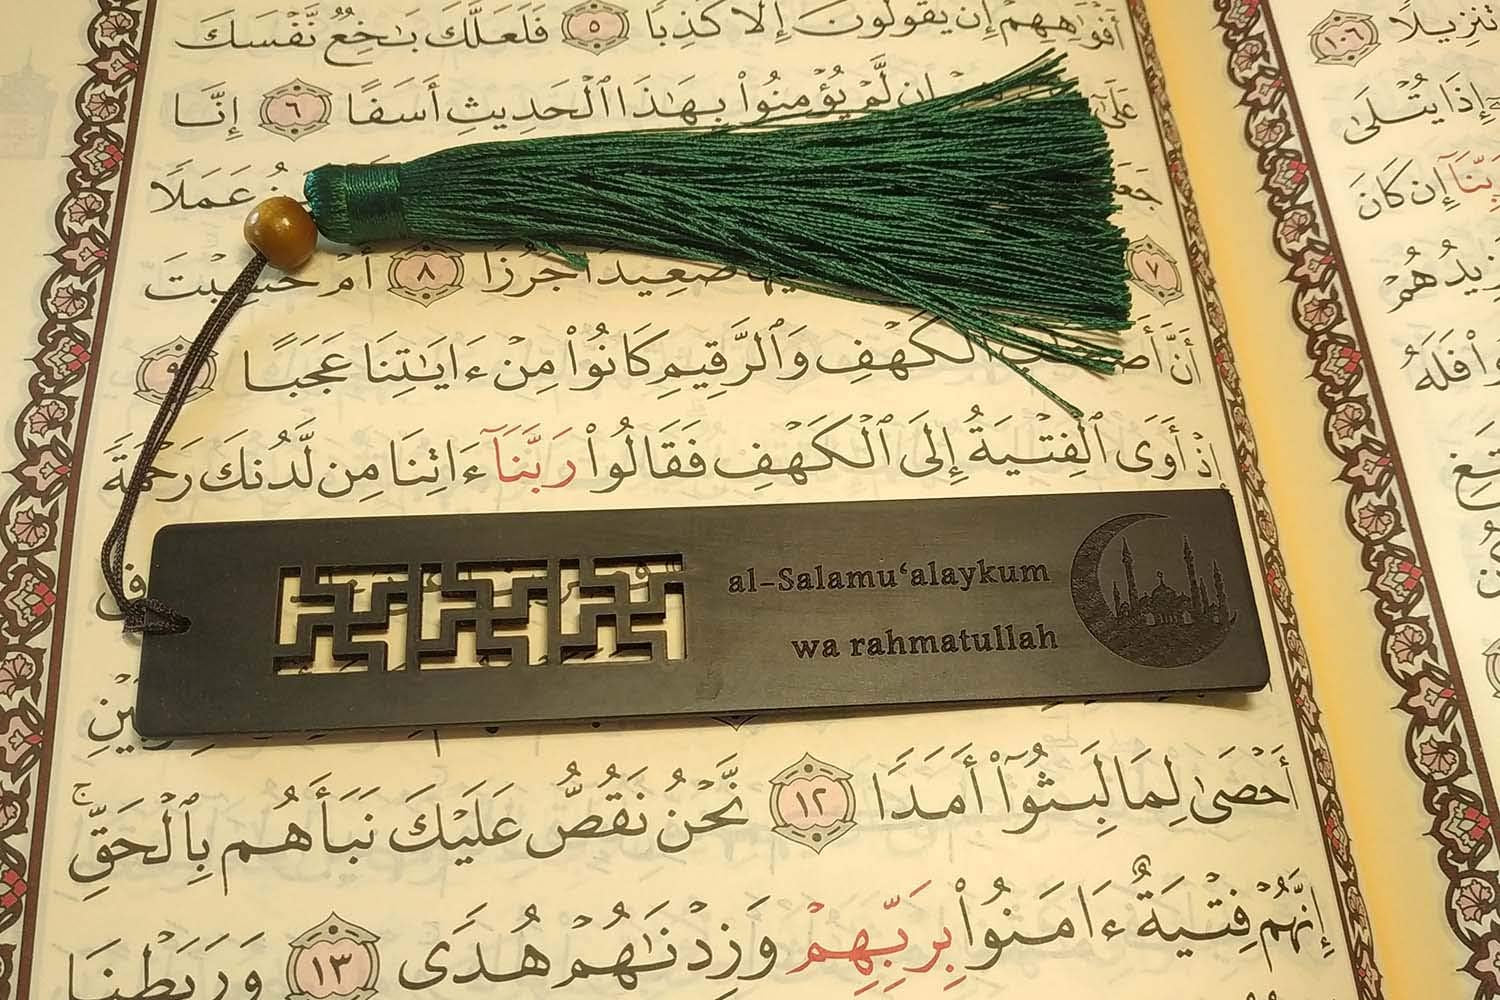 أَفْوَٰهِهِمْ إِن يَقُولُونَ إِلَّا كَذِبًا ٥ فَلَعَلَّكَ بَـٰخِعٌ نَّفْسَكَ
عَلَىٰٓ إِن لَّمْ يُؤْمِنُوا۟ بِهَـٰذَا ٱلْحَدِيثِ أَسَفًا ٦ إِنَّا
عَمَلًا
٧ صَعِيدًا جُرُزًا ٨ أَمْ حَسِبْتَ
أَنَّ ٱلْكَهْفِ وَٱلرَّقِيمِ كَانُوا۟ مِنْ ءَايَـٰتِنَا عَجَبًا ٩
إِذْ أَوَى ٱلْفِتْيَةُ إِلَى ٱلْكَهْفِ فَقَالُوا۟ رَبَّنَآ ءَاتِنَا مِن لَّدُنكَ رَحْمَةً
al-Salamu‘alaykum
wa rahmatullah
أَحْصَىٰ لِمَا لَبِثُوٓا۟ أَمَدًا ١٢ نَّحْنُ نَقُصُّ عَلَيْكَ نَبَأَهُم بِٱلْحَقِّ ۚ
إِنَّهُمْ فِتْيَةٌ ءَامَنُوا۟ بِرَبِّهِمْ وَزِدْنَـٰهُمْ هُدًى ١٣ وَرَبَطْنَا
تَنزِيلًا ١٠٦
إِذَا يُتْلَىٰ
رَبِّنَآ إِن كَانَ